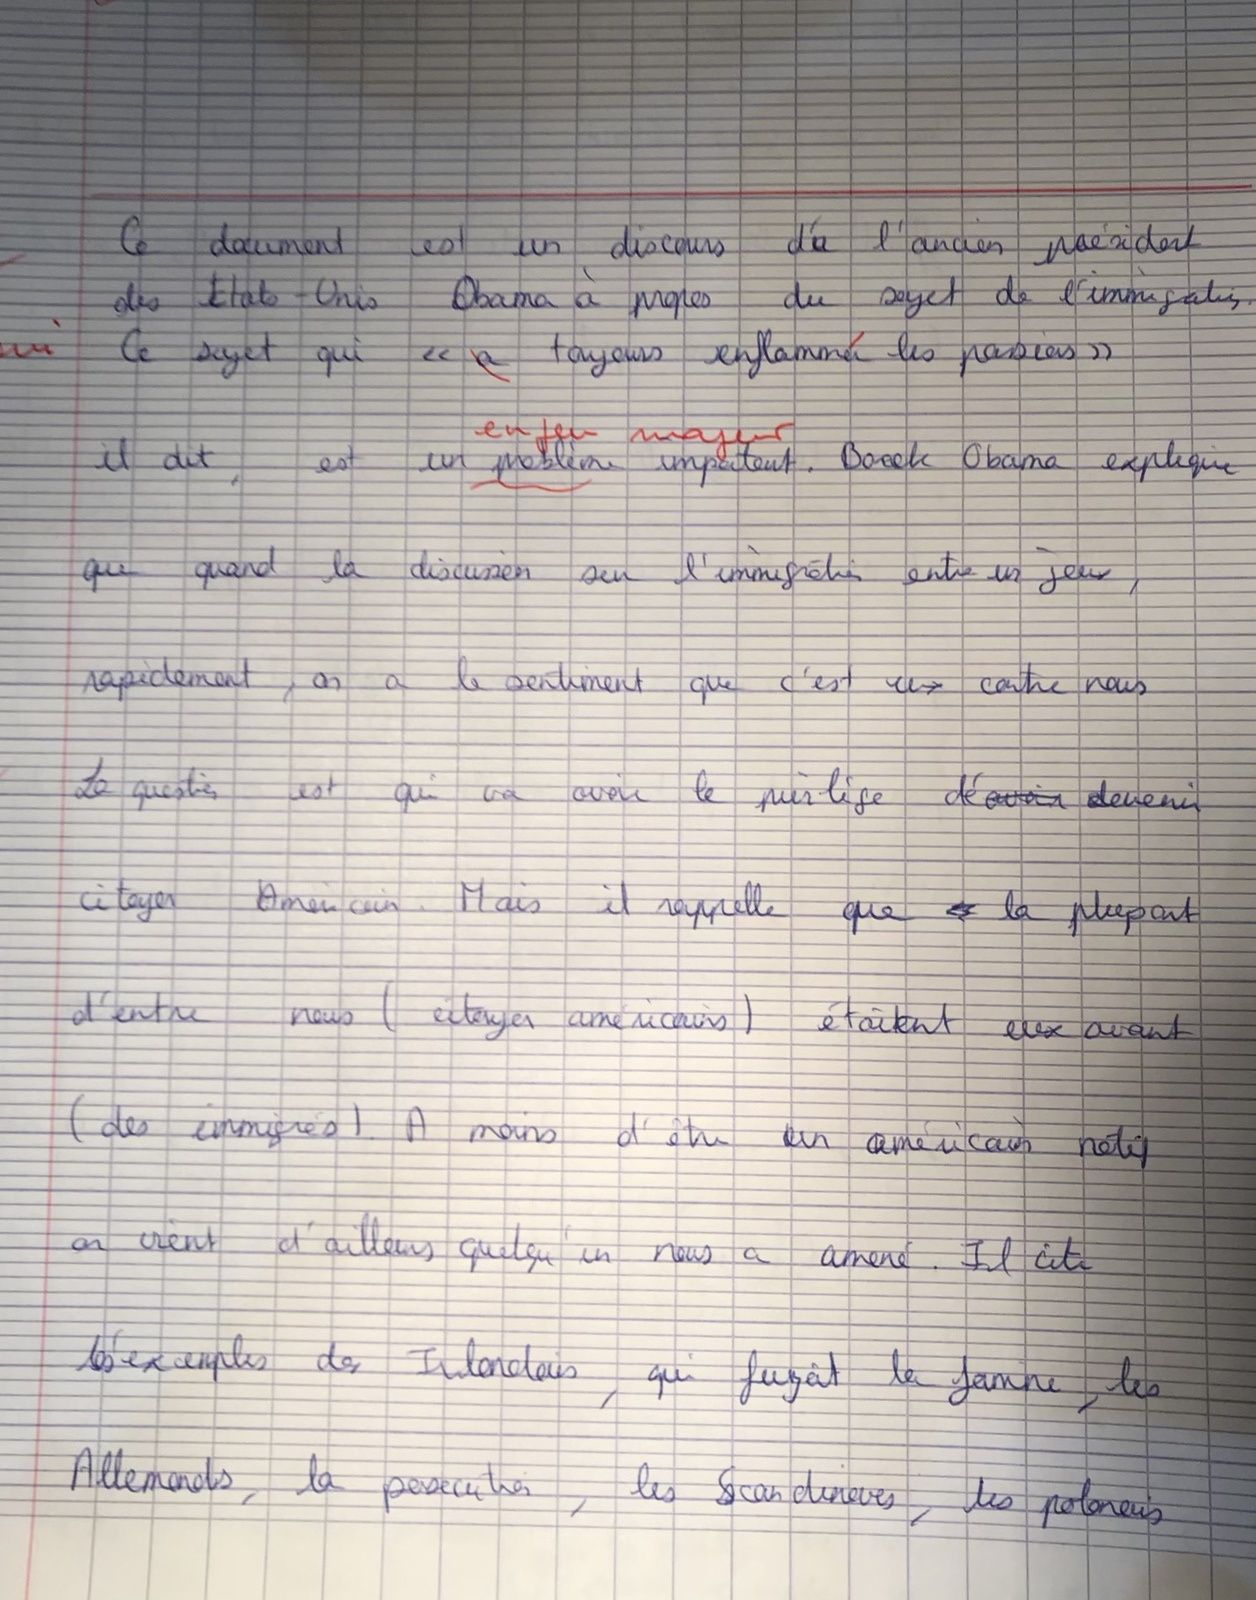 Ce document est un discours dû à l'ancien président
des États-Unis Obama à propos du sujet de l'immigration.
Ce sujet qui « a toujours enflammé les passions »
enjeu majeur
il dit, est un problème important. Barack Obama explique
que quand la discussion sur l'immigration entre en jeux,
rapidement, on a le sentiment que c'est eux contre nous
La question est qui va avoir le privilège d'avoir devenir
citoyen Américain. Mais il rappelle que la plupart
d'entre nous (citoyen américains) étaient eux avant
(des immigrés). A moins d'être un américain natif
on vient d'ailleurs quelqu'un nous a amené. Il cite
les exemples des Irlandais, qui fuyait la famine, les
Allemands, la persecution, les Scandinaves, les polonais